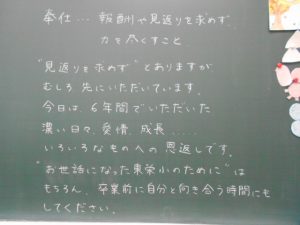 奉仕… 報酬や見返りを求めず
力を尽くすこと
"見返りを求めず"とありますが
むしろ、先にいただいています。
今日は、6年間でいただいた
濃い日々、愛情、成長.....
いろいろなものへの恩返しです。
"お世話になった東栄小のために"は
もちろん、卒業前に自分と向き合う時間にも
してください。